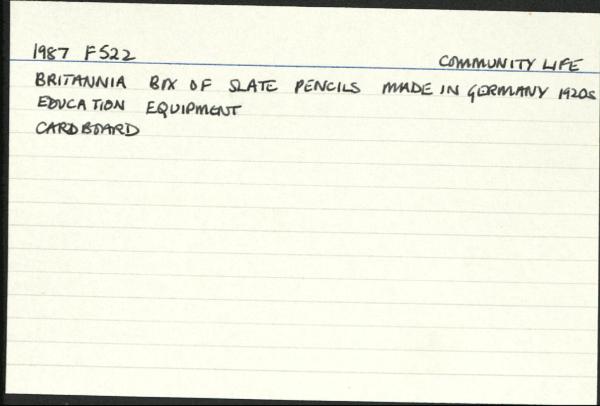 1987 F522 COMMUNITY LIFE
BRITANNIA BOX OF SLATE PENCILS MADE IN GERMANY 1920s
EDUCATION EQUIPMENT
CARDBOARD